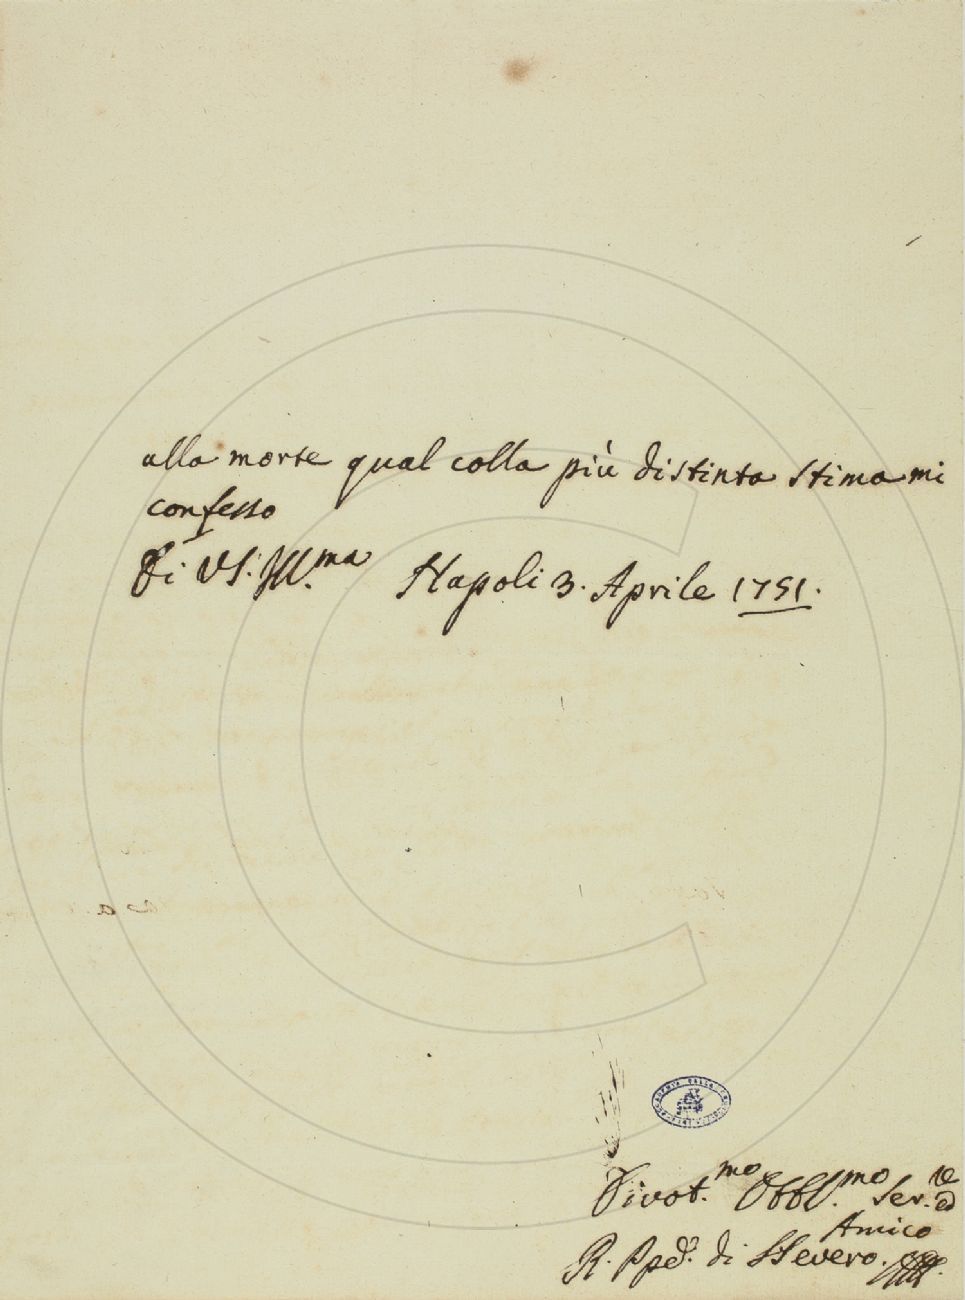 alla morte qual colla più distinta stima mi
confesso
Di VS. Ill.ma Napoli 3. Aprile 1751.
ACCADEMIA DELLA
Divot.mo Obbl.mo Ser.re ed
Amico
R. Ppe. di SSevero.